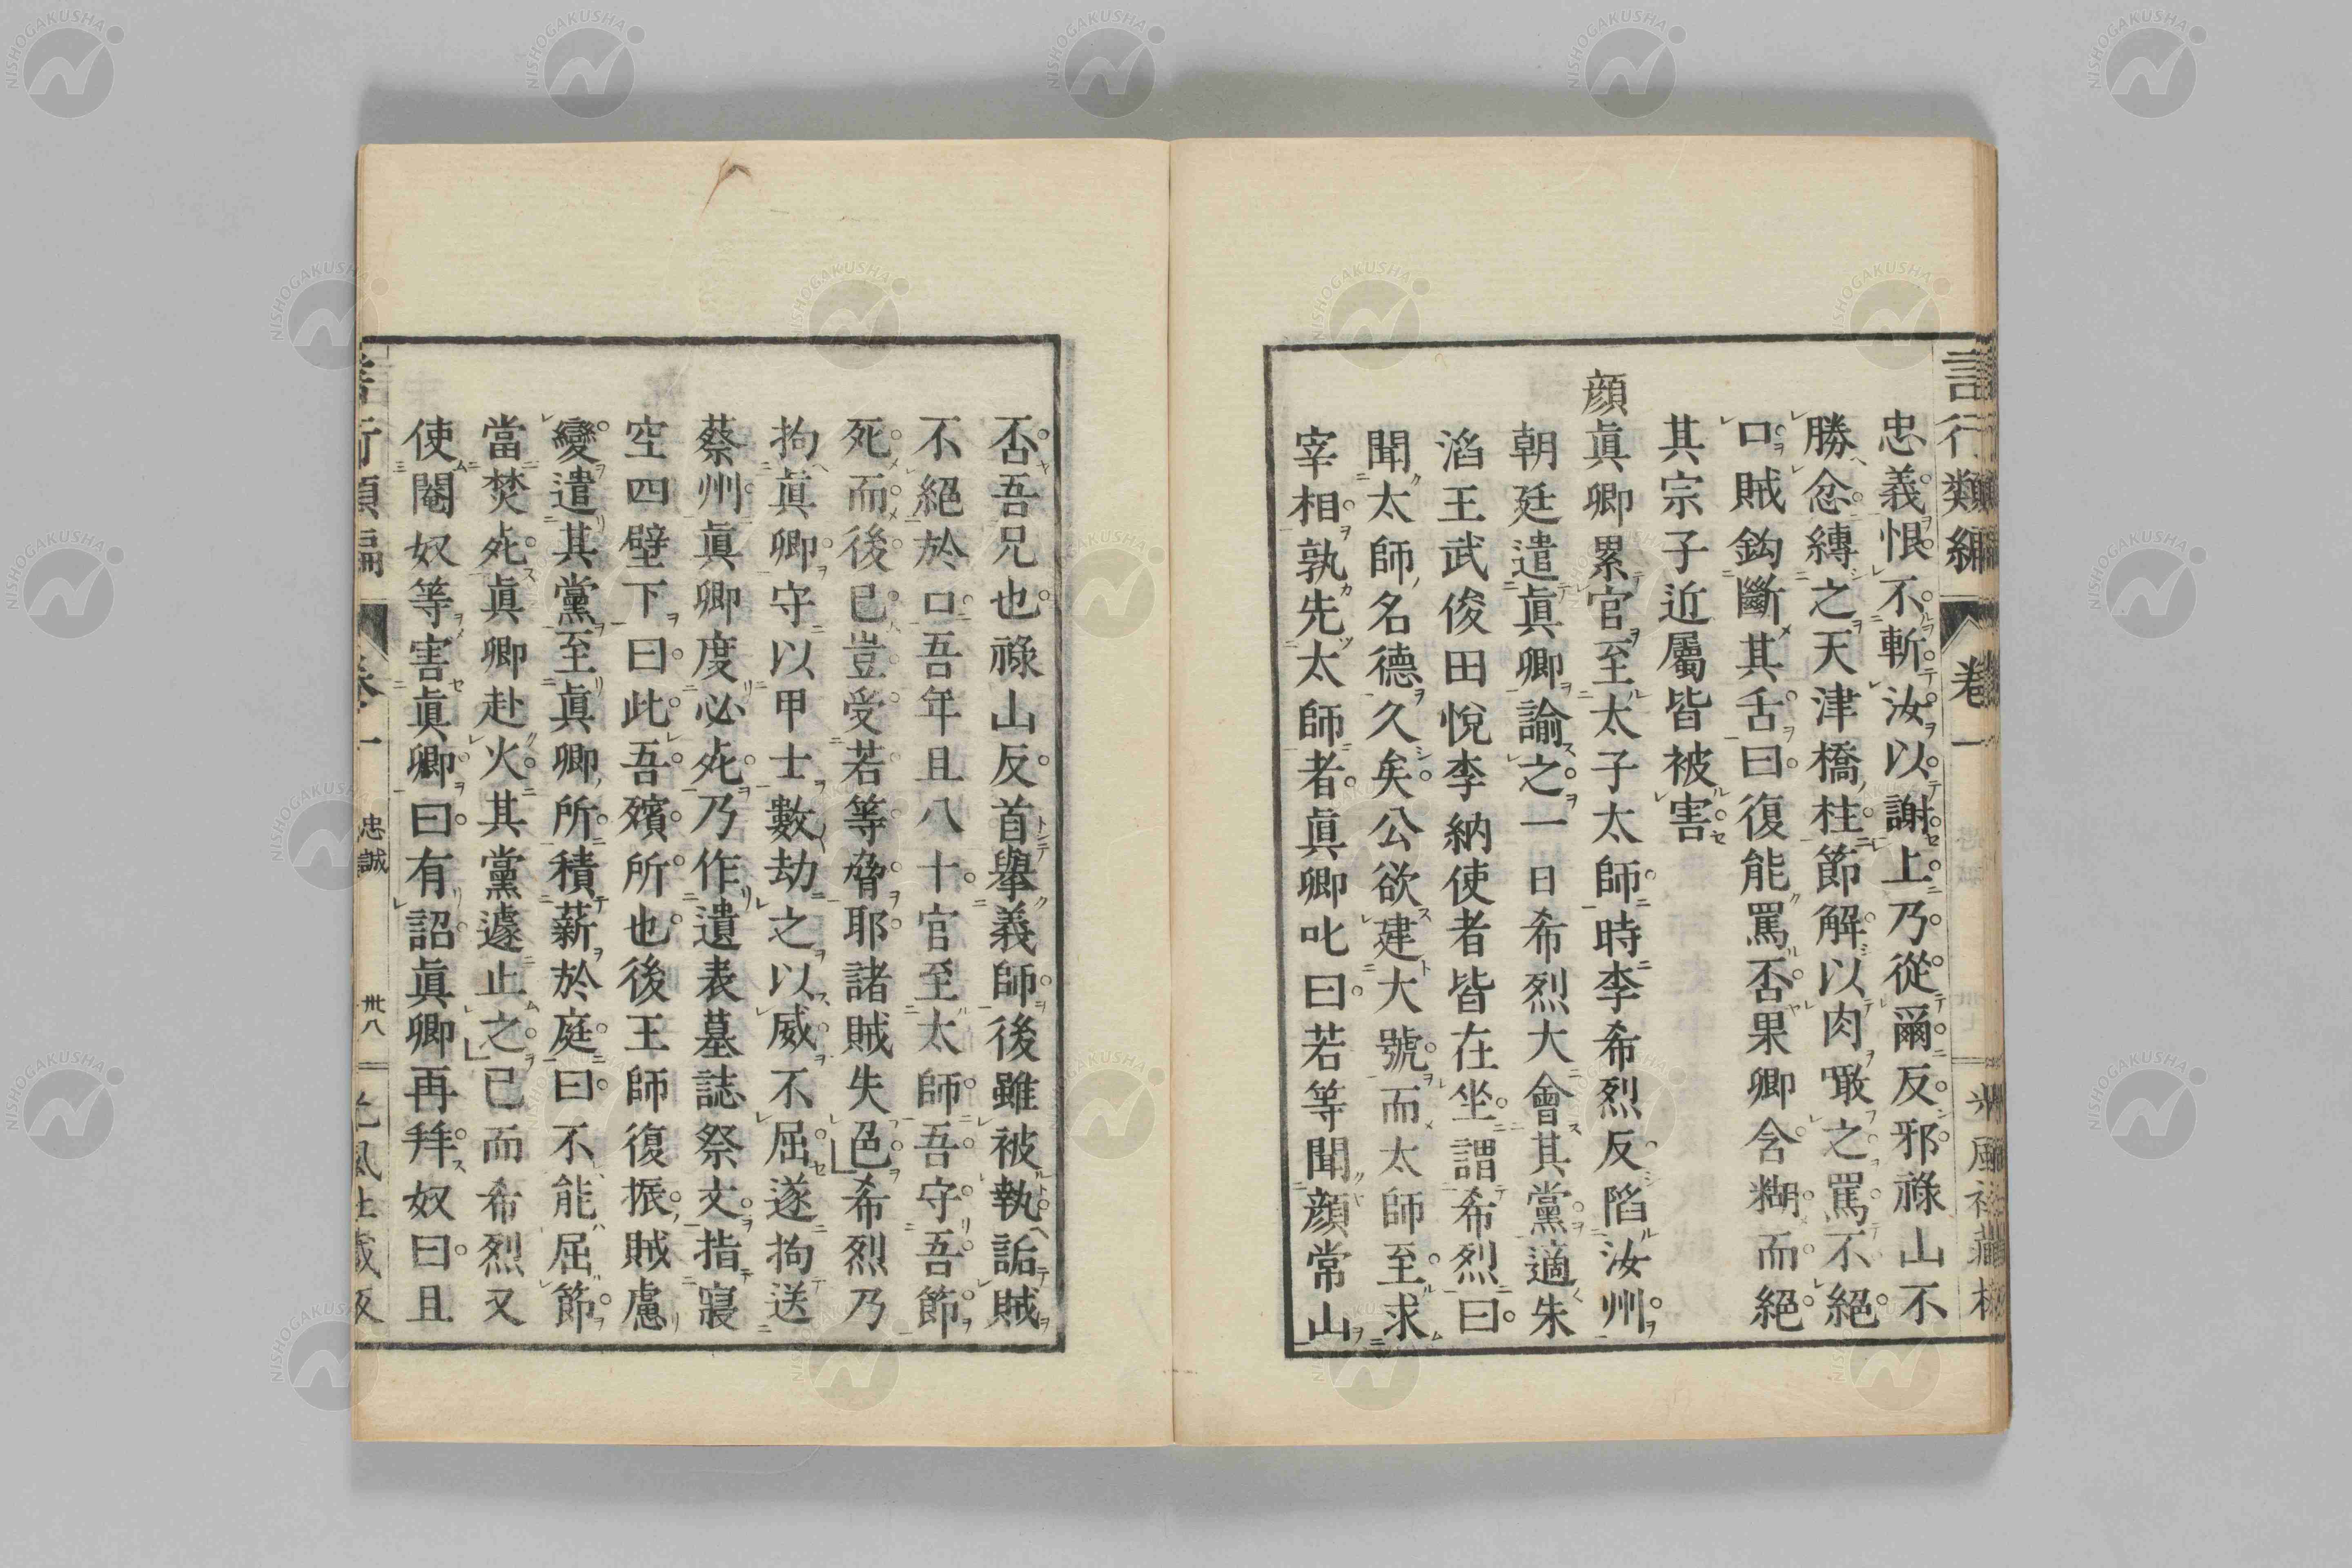 言行類編 卷一
忠義恨不斬汝以謝上乃從爾反邪祿山不
勝忿縛之天津橋柱節解以肉噉之罵不絕
口賊鈎斷其舌曰復能罵否杲卿含糊而絕
其宗子近屬皆被害
顏眞卿累官至太子太師時李希烈反陷汝州
朝廷遣眞卿諭之一日希烈大會其黨適朱
滔王武俊田悅李納使者皆在坐謂希烈曰
聞太師名德久矣公欲建大號而太師至求
宰相孰先太師者眞卿叱曰若等聞顏常山
否吾兄也祿山反首擧義師後雖被執詬賊
不絕於口吾年且八十官至太師吾守吾節
死而後已豈受若等脅耶諸賊失色希烈乃
拘眞卿守以甲士數劫之以威不屈遂拘送
蔡州眞卿度必死乃作遺表墓誌祭文指寢
空四壁下曰此吾殯所也後王師復振賊慮
變遣其黨至眞卿所積薪於庭曰不能屈節
當焚死眞卿赴火其黨遽止之已而希烈又
使閹奴等害眞卿曰有詔眞卿再拜奴曰且
忠誠 卅八
NISHOGAKUSHA